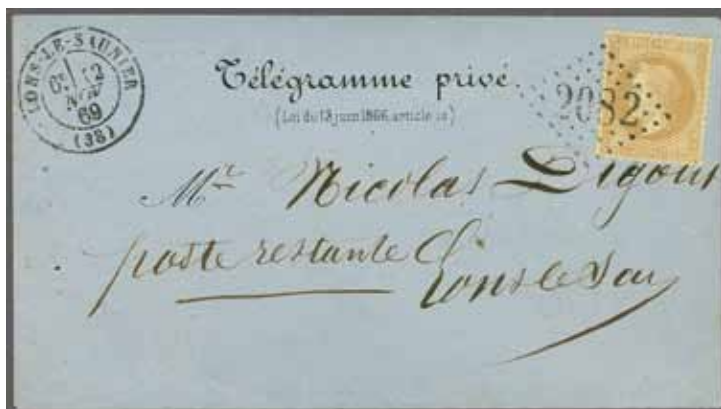 LONS-LE-SAUNIER
12
NOV
69
(38)
Télégramme privé.
(Loi du 13 juin 1866, article
2082
Mr Nicolas Ligout
poste restante
Lons le Sau